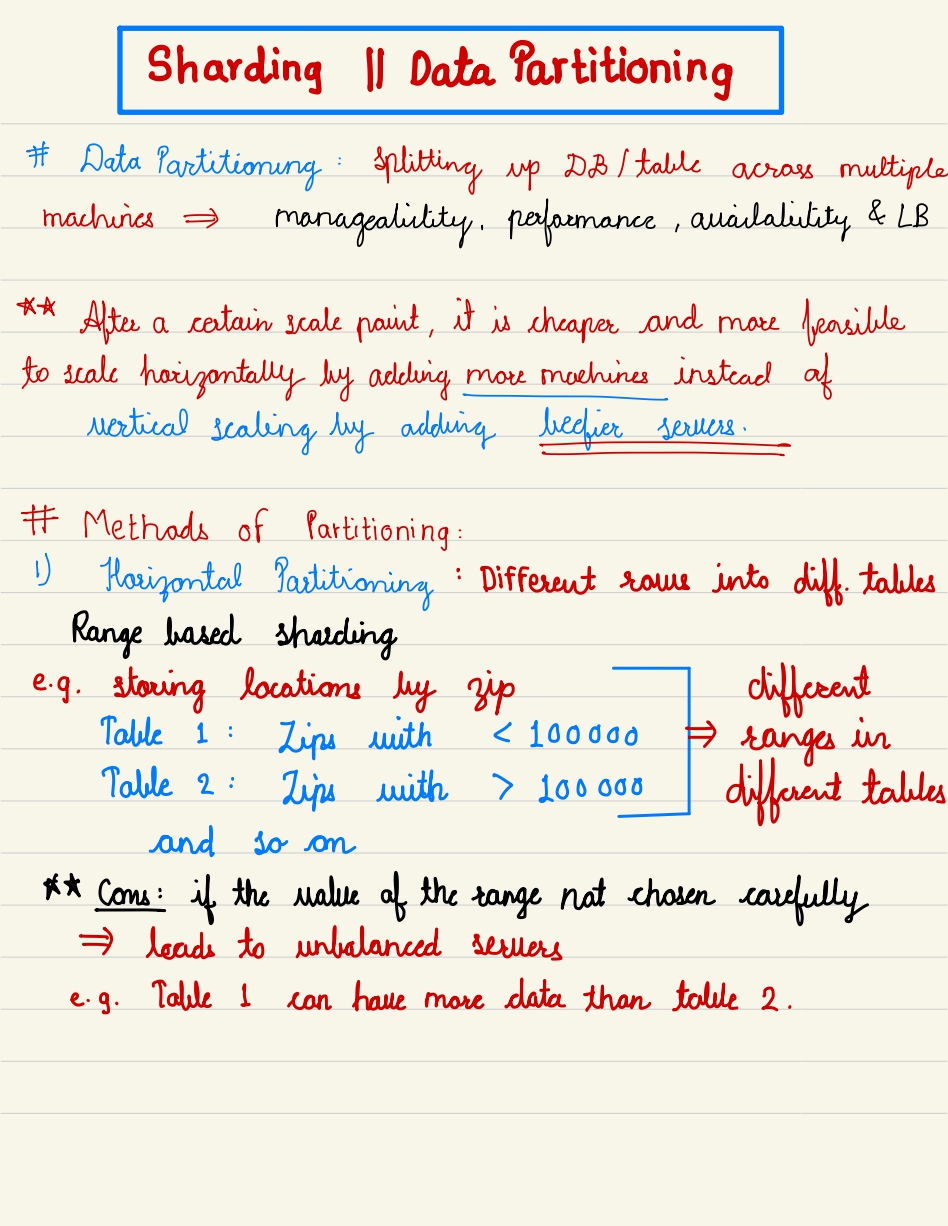 Sharding || Data Partitioning
# Data Partitioning : Splitting up DB/table across multiple
machines ⇒ manageability, performance, availability & LB
** After a certain scale point, it is cheaper and more feasible
to scale horizontally by adding more machines instead of
vertical scaling by adding beefier servers.
# Methods of Partitioning:
1) Horizontal Partitioning : Different rows into diff. tables
Range based sharding
e.g. storing locations by zip
Table 1 : Zips with < 100000
Table 2 : Zips with > 100000
⇒ different
ranges in
different tables
and so on
** Cons: if the value of the range not chosen carefully
⇒ leads to unbalanced servers
e.g. Table 1 can have more data than table 2.